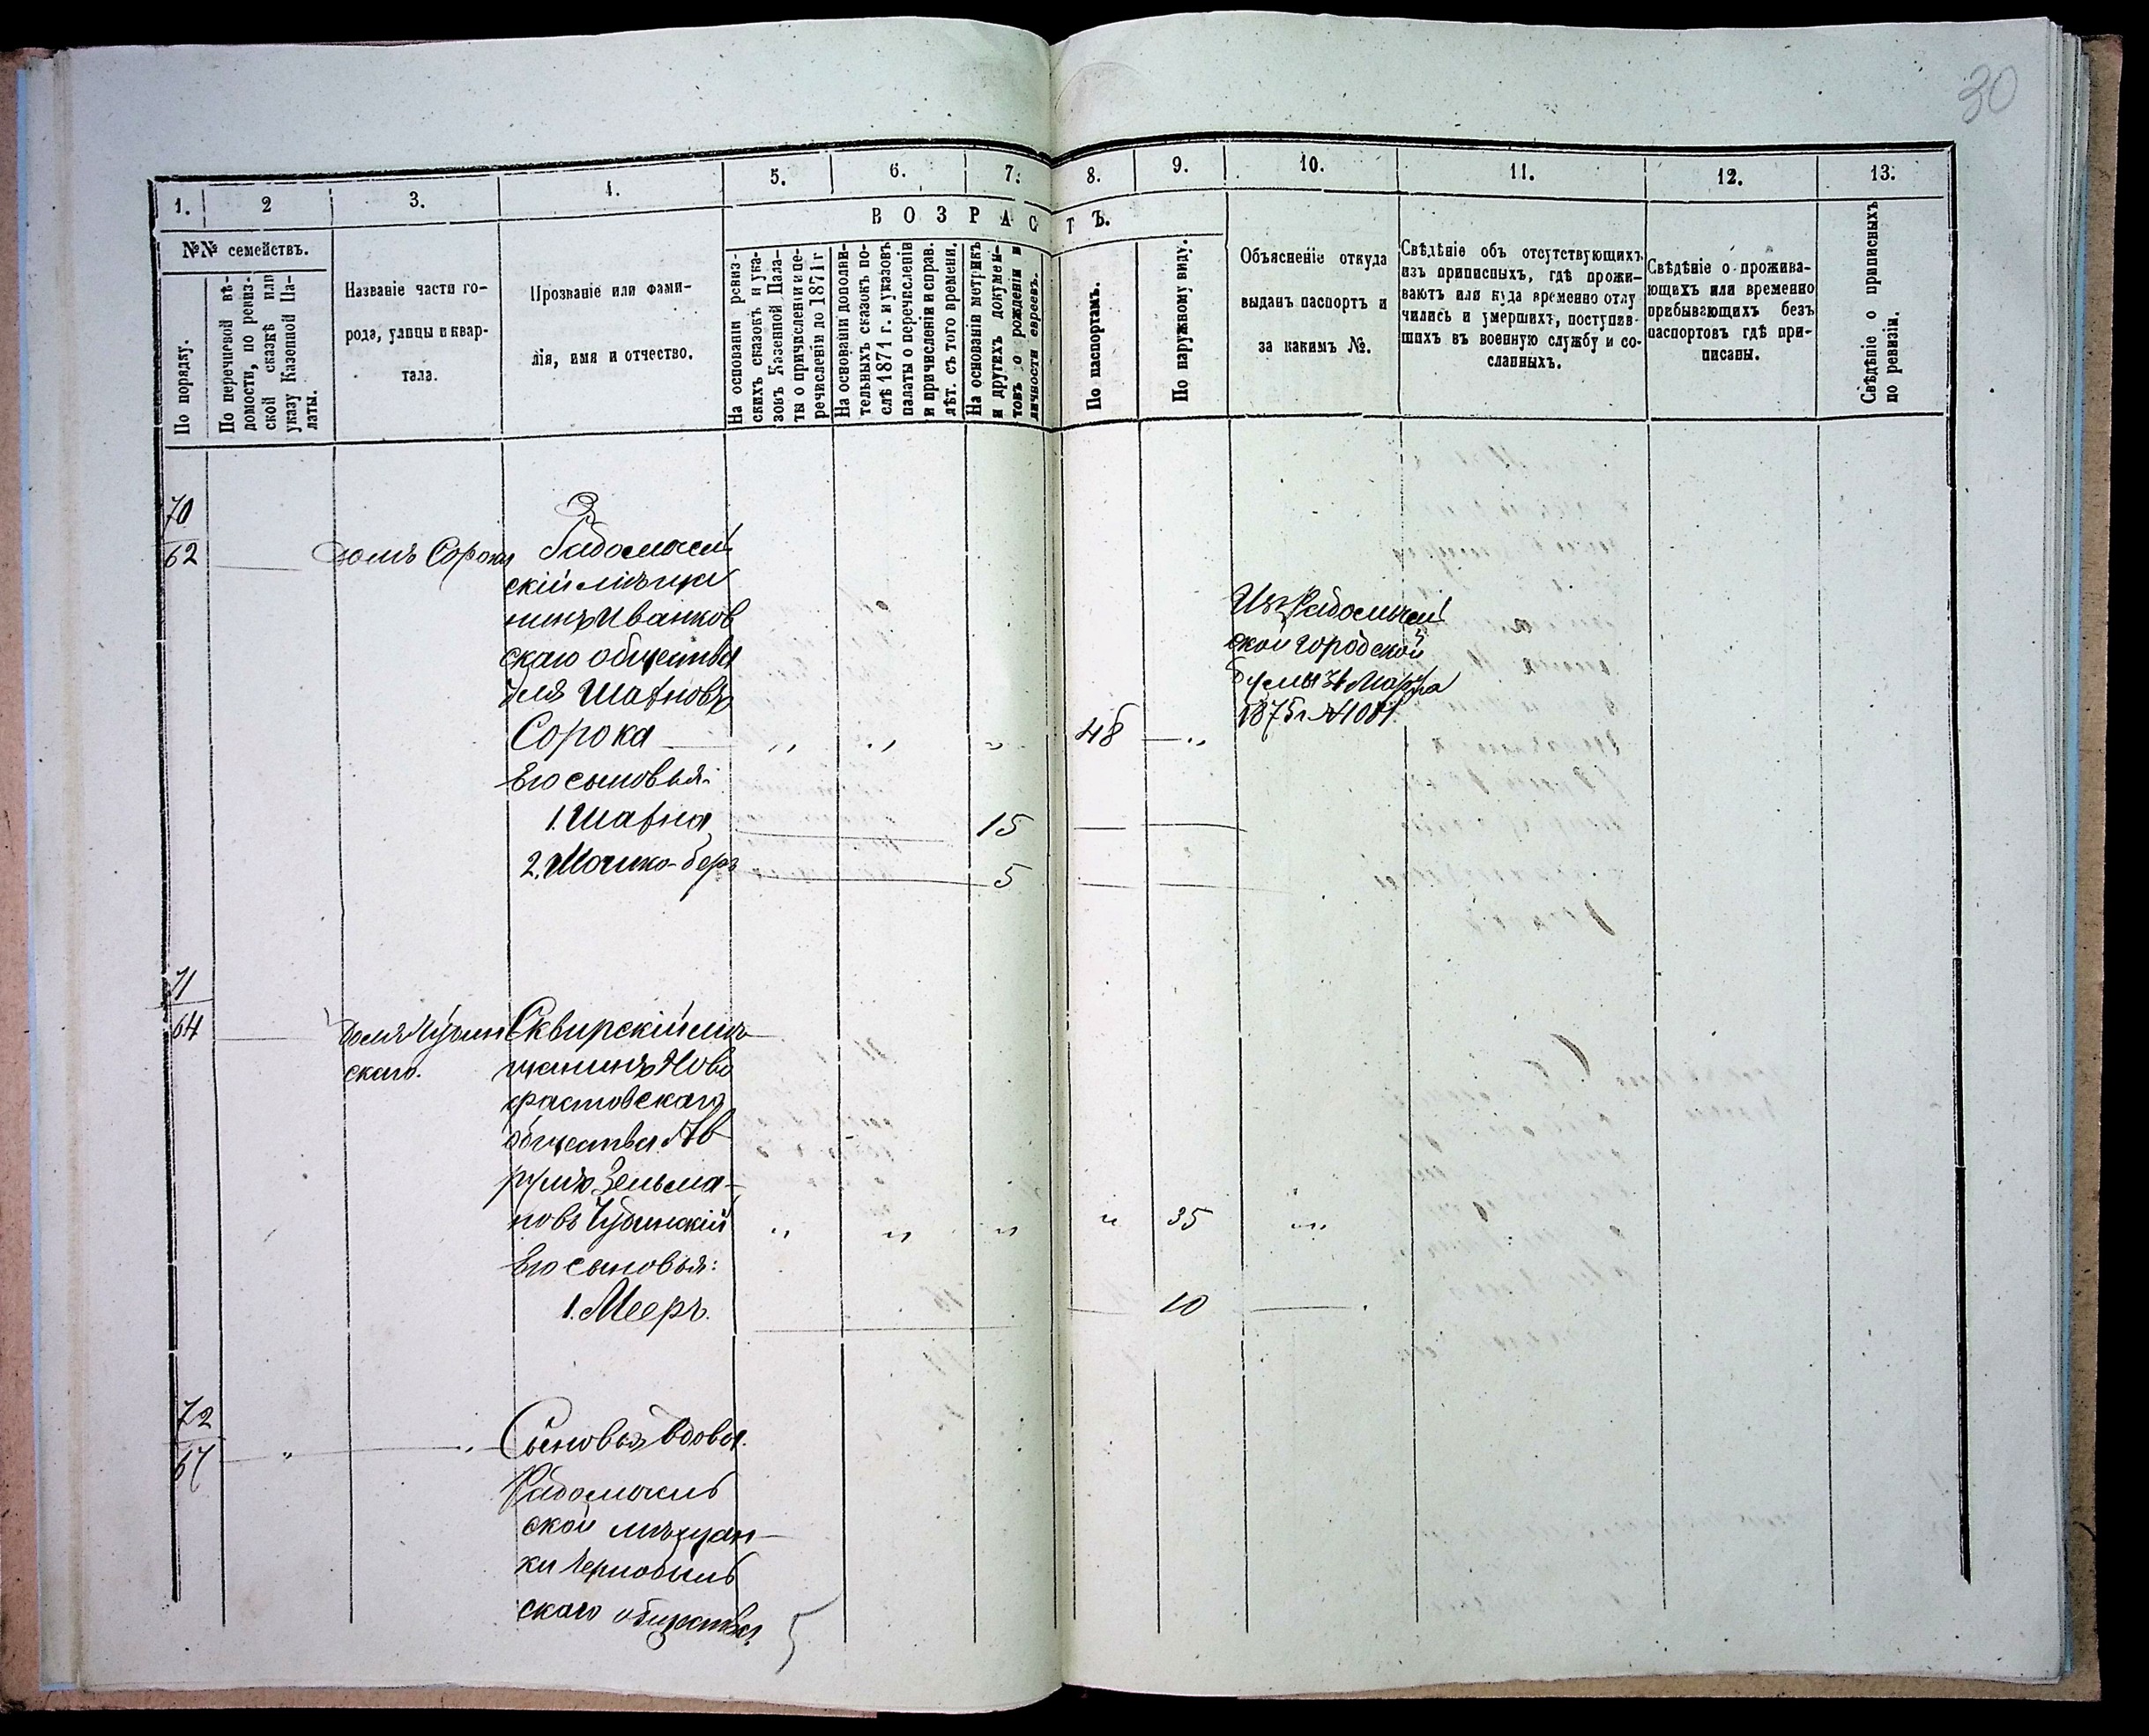 30
1. 2 3. 4. 5. 6. 7. 8. 9. 10. 11. 12. 13.
ВОЗРАСТЪ.
№№ семействъ.
По порядку.
По перечневой вѣ-
домости, по ревиз-
ской сказкѣ или
указу Казенной Па-
латы.
Названіе части го-
рода, улицы и квар-
тала.
Прозваніе или фами-
лія, имя и отчество.
На основаніи ревиз-
скихъ сказокъ и ука-
зовъ Казенной Пала-
ты о причисленіи и пе-
речисленіи до 1871 г
На основаніи дополни-
тельныхъ сказокъ по-
слѣ 1871 г. и указовъ
палаты о перечисленіи
и причисленіи и справ.
лѣт. съ того времени.
На основаніи метрикъ
и другихъ докумен-
товъ о рожденіи и
личности евреевъ.
По паспортамъ.
По наружному виду.
Объясненіе откуда
выданъ паспортъ и
за какимъ №.
Свѣдѣніе объ отсутствующихъ
изъ приписныхъ, гдѣ прожи-
ваютъ или куда временно отлу
чились и умершихъ, поступив-
шихъ въ военную службу и со-
сланныхъ.
Свѣдѣніе о прожива-
ющихъ или временно
прибывающихъ безъ
паспортовъ гдѣ при-
писаны.
Свѣдѣніе о приписныхъ
по ревизіи.
70
62
домъ Сороки
Радомысл
скій мѣща
нинъ Иванков
скаго общества
Шавновъ
Сорока „ „ „ 48 „
Его сыновья:
1. Шавна 15
2. Мошко-беръ 5
Изъ Радомысл
ской городской
думы 31 Марта
1875 г. №1081.
71
64
скаго.
Сквирскій мѣ
щанинъ Ново
фастовскаго
общества Ав
румъ Зельма-
новъ Чудинскій „ „ „ „ 35 „
Его сыновья:
1. Мееръ. 10
72
67
„ „
Сыновья вдовы
Радомысль
ской мѣщан-
ки Чернобыль
скаго общества